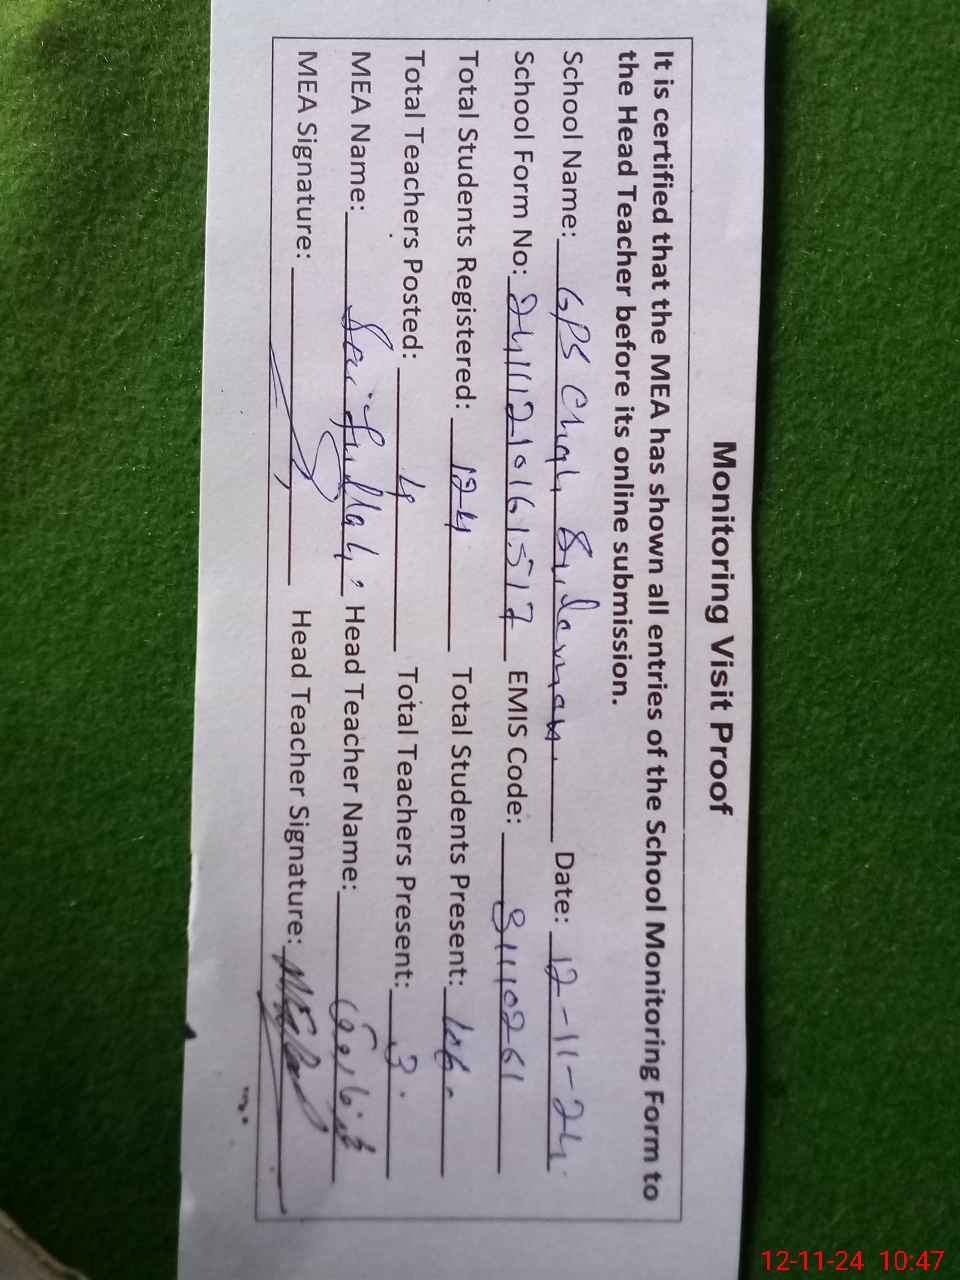 Monitoring Visit Proof
It is certified that the MEA has shown all entries of the School Monitoring Form to
the Head Teacher before its online submission.
School Name: GPS Chah Sulaman. Date: 12-11-24
School Form No: 24111210161517 EMIS Code: 31110261
Total Students Registered: 124 Total Students Present: 106
Total Teachers Posted: 4 Total Teachers Present: 3
MEA Name: Saifullah Head Teacher Name:
MEA Signature: Head Teacher Signature:
12-11-24 10:47